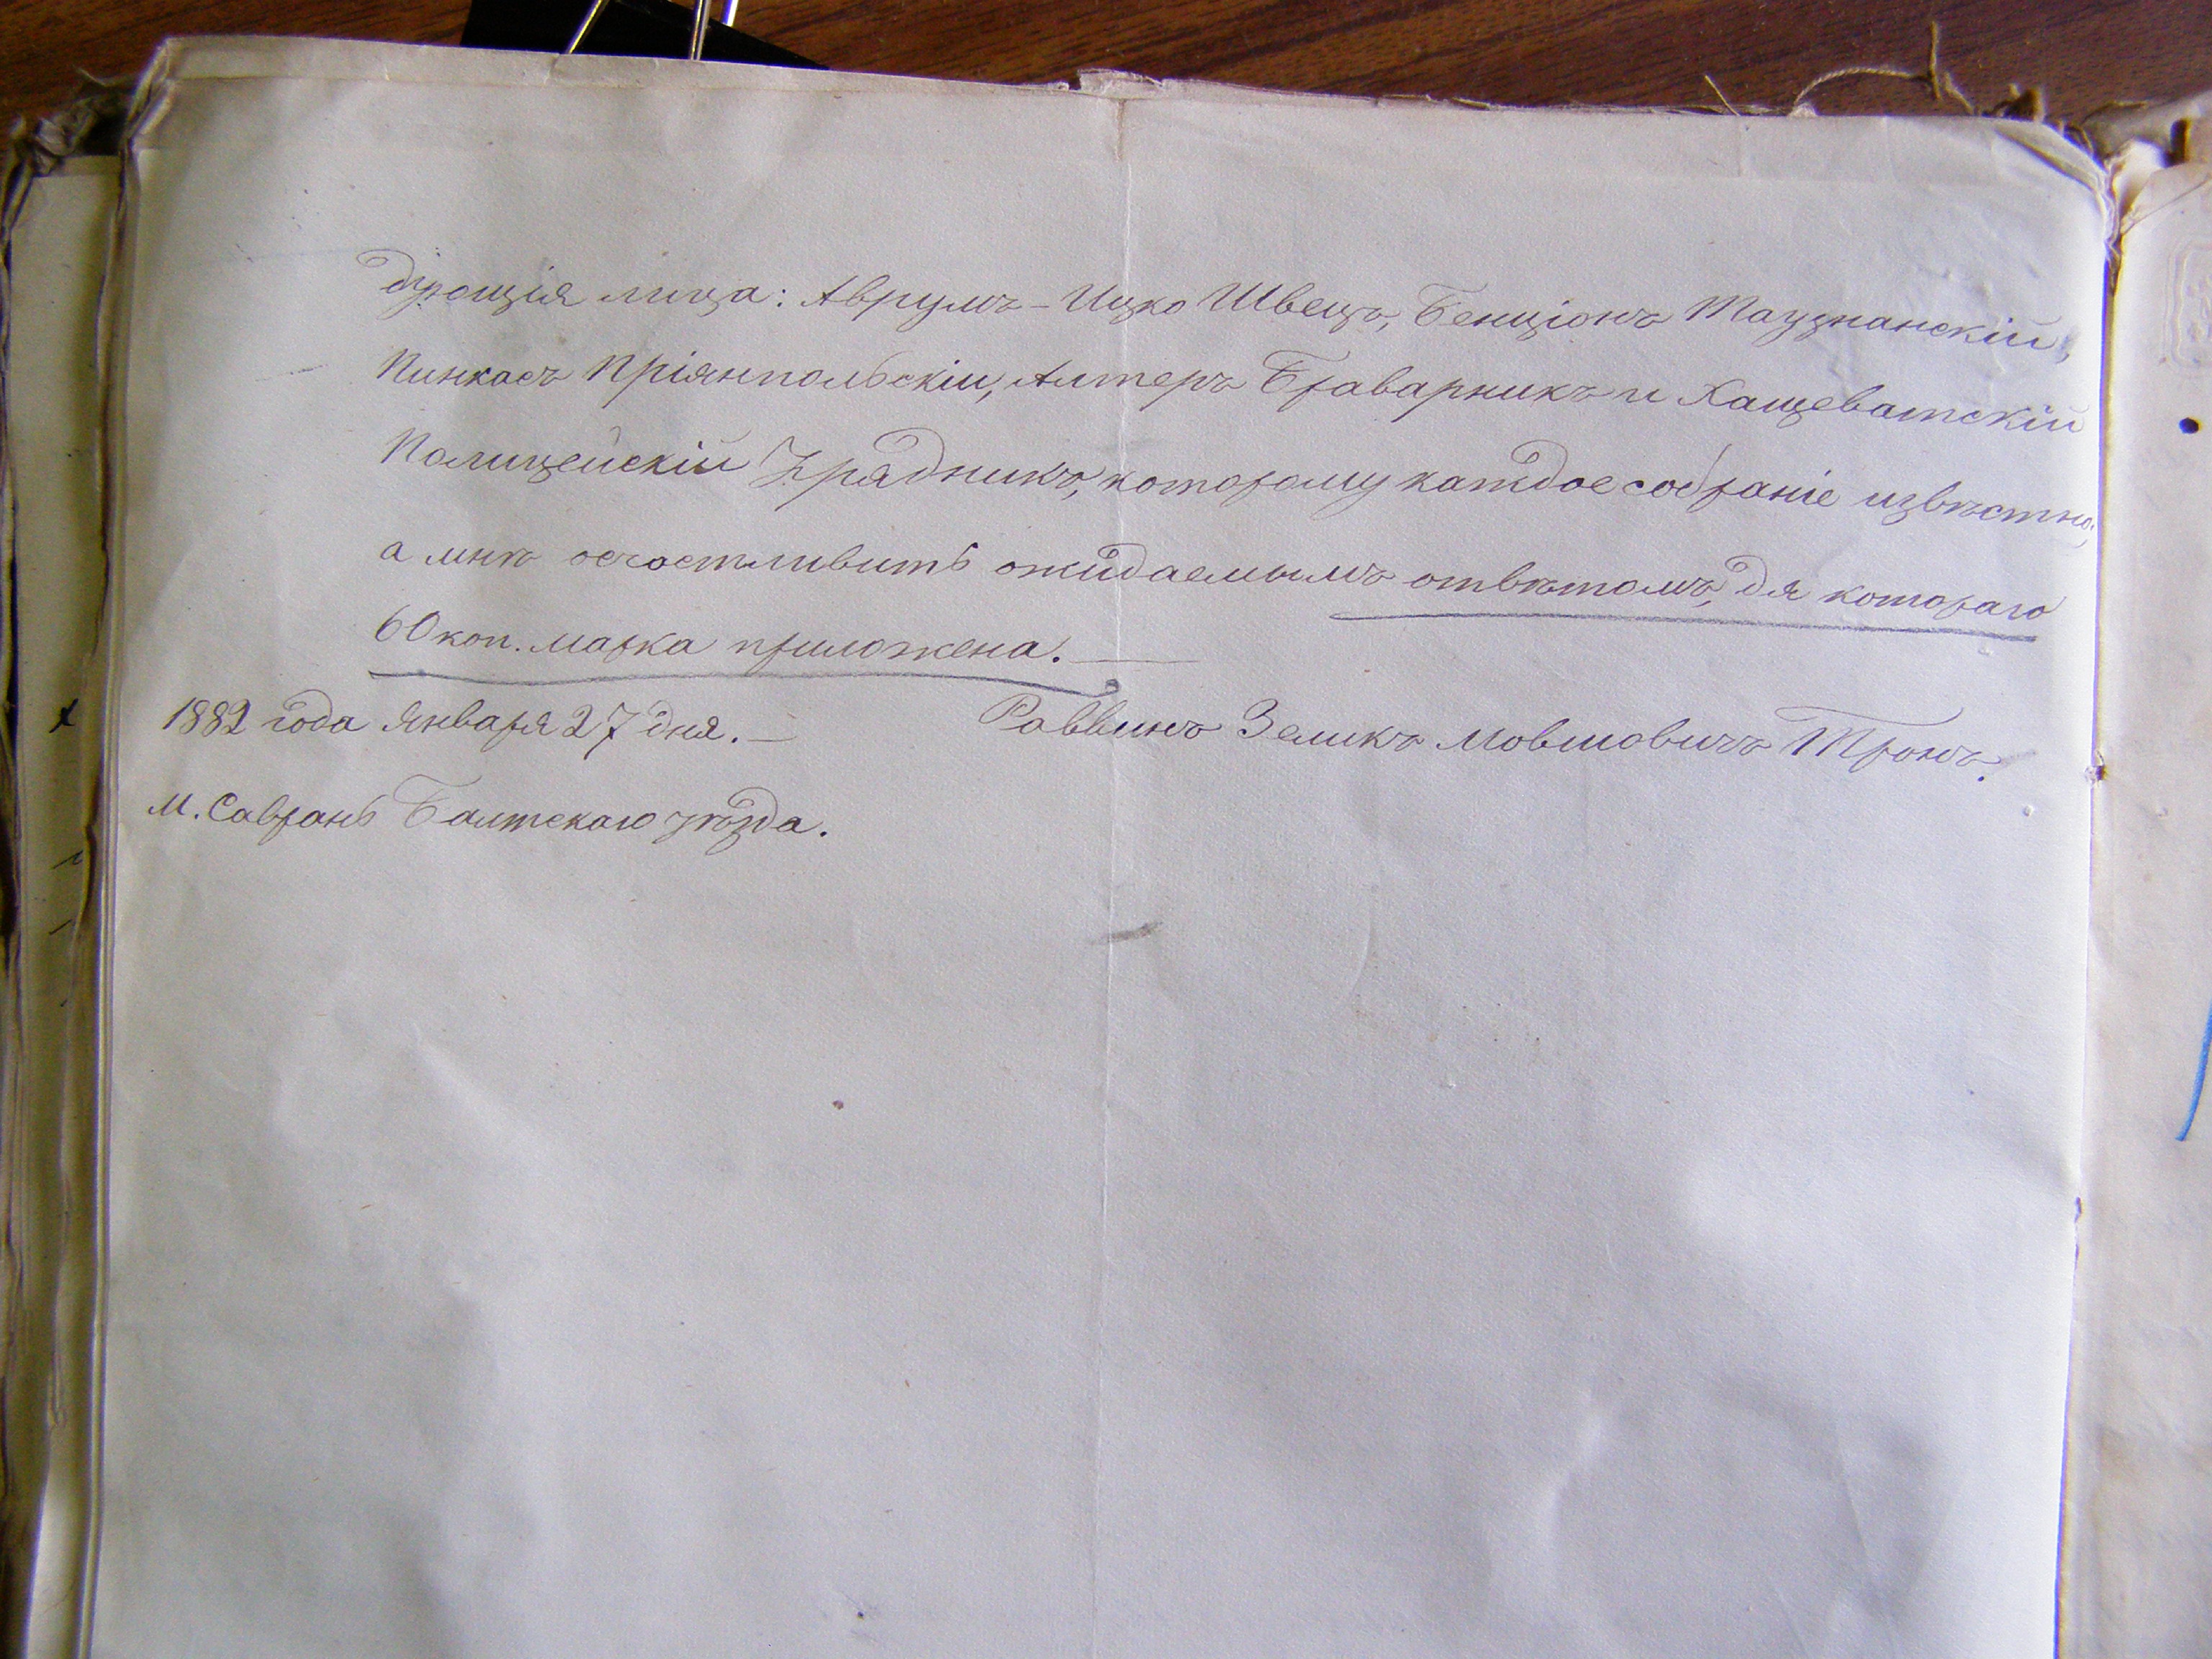 дующія лица: Аврумъ-Ицко Швецъ, Бенціонъ Таузнанскій,
Пинкасъ Пріянпольскій, Алтеръ Браварникъ и Хащеватскій
Полицейскій Урядникъ, которому каждое собраніе извѣстно;
а мнѣ осчастливить ожидаемымъ отвѣтомъ, для котораго
60 коп. марка приложена.
1882 года Января 27 дня. — Раввинъ Зеликъ Мовшовичъ Тронъ.
М. Саврань Балтскаго уѣзда.